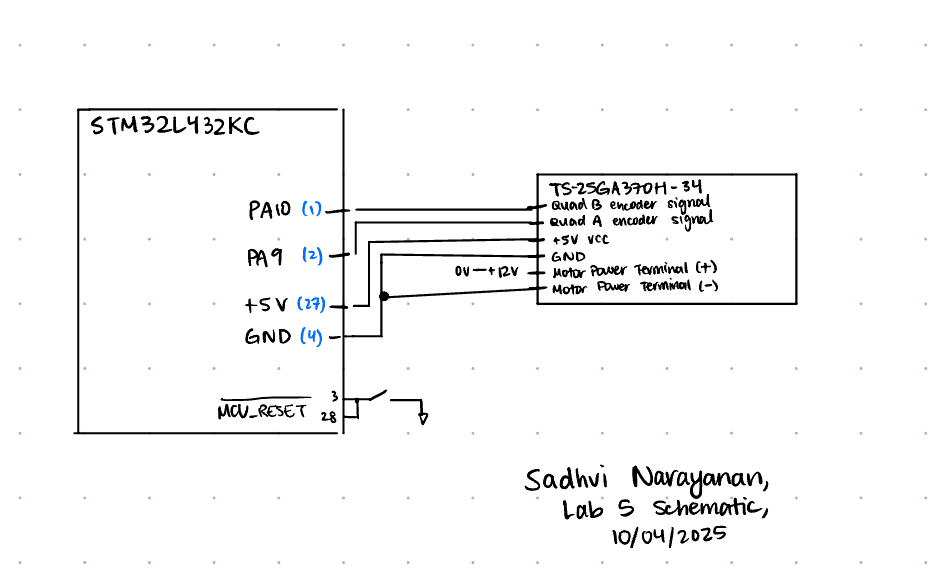 STM32L432KC
PA10 (1)
PA9 (2)
+5V (27)
GND (4)
MCU_RESET
3
28
TS-25GA370H-34
Quad B encoder signal
Quad A encoder signal
+5V VCC
GND
0V—+12V
Motor Power Terminal (+)
Motor Power Terminal (-)
Sadhvi Narayanan,
Lab 5 Schematic,
10/04/2025